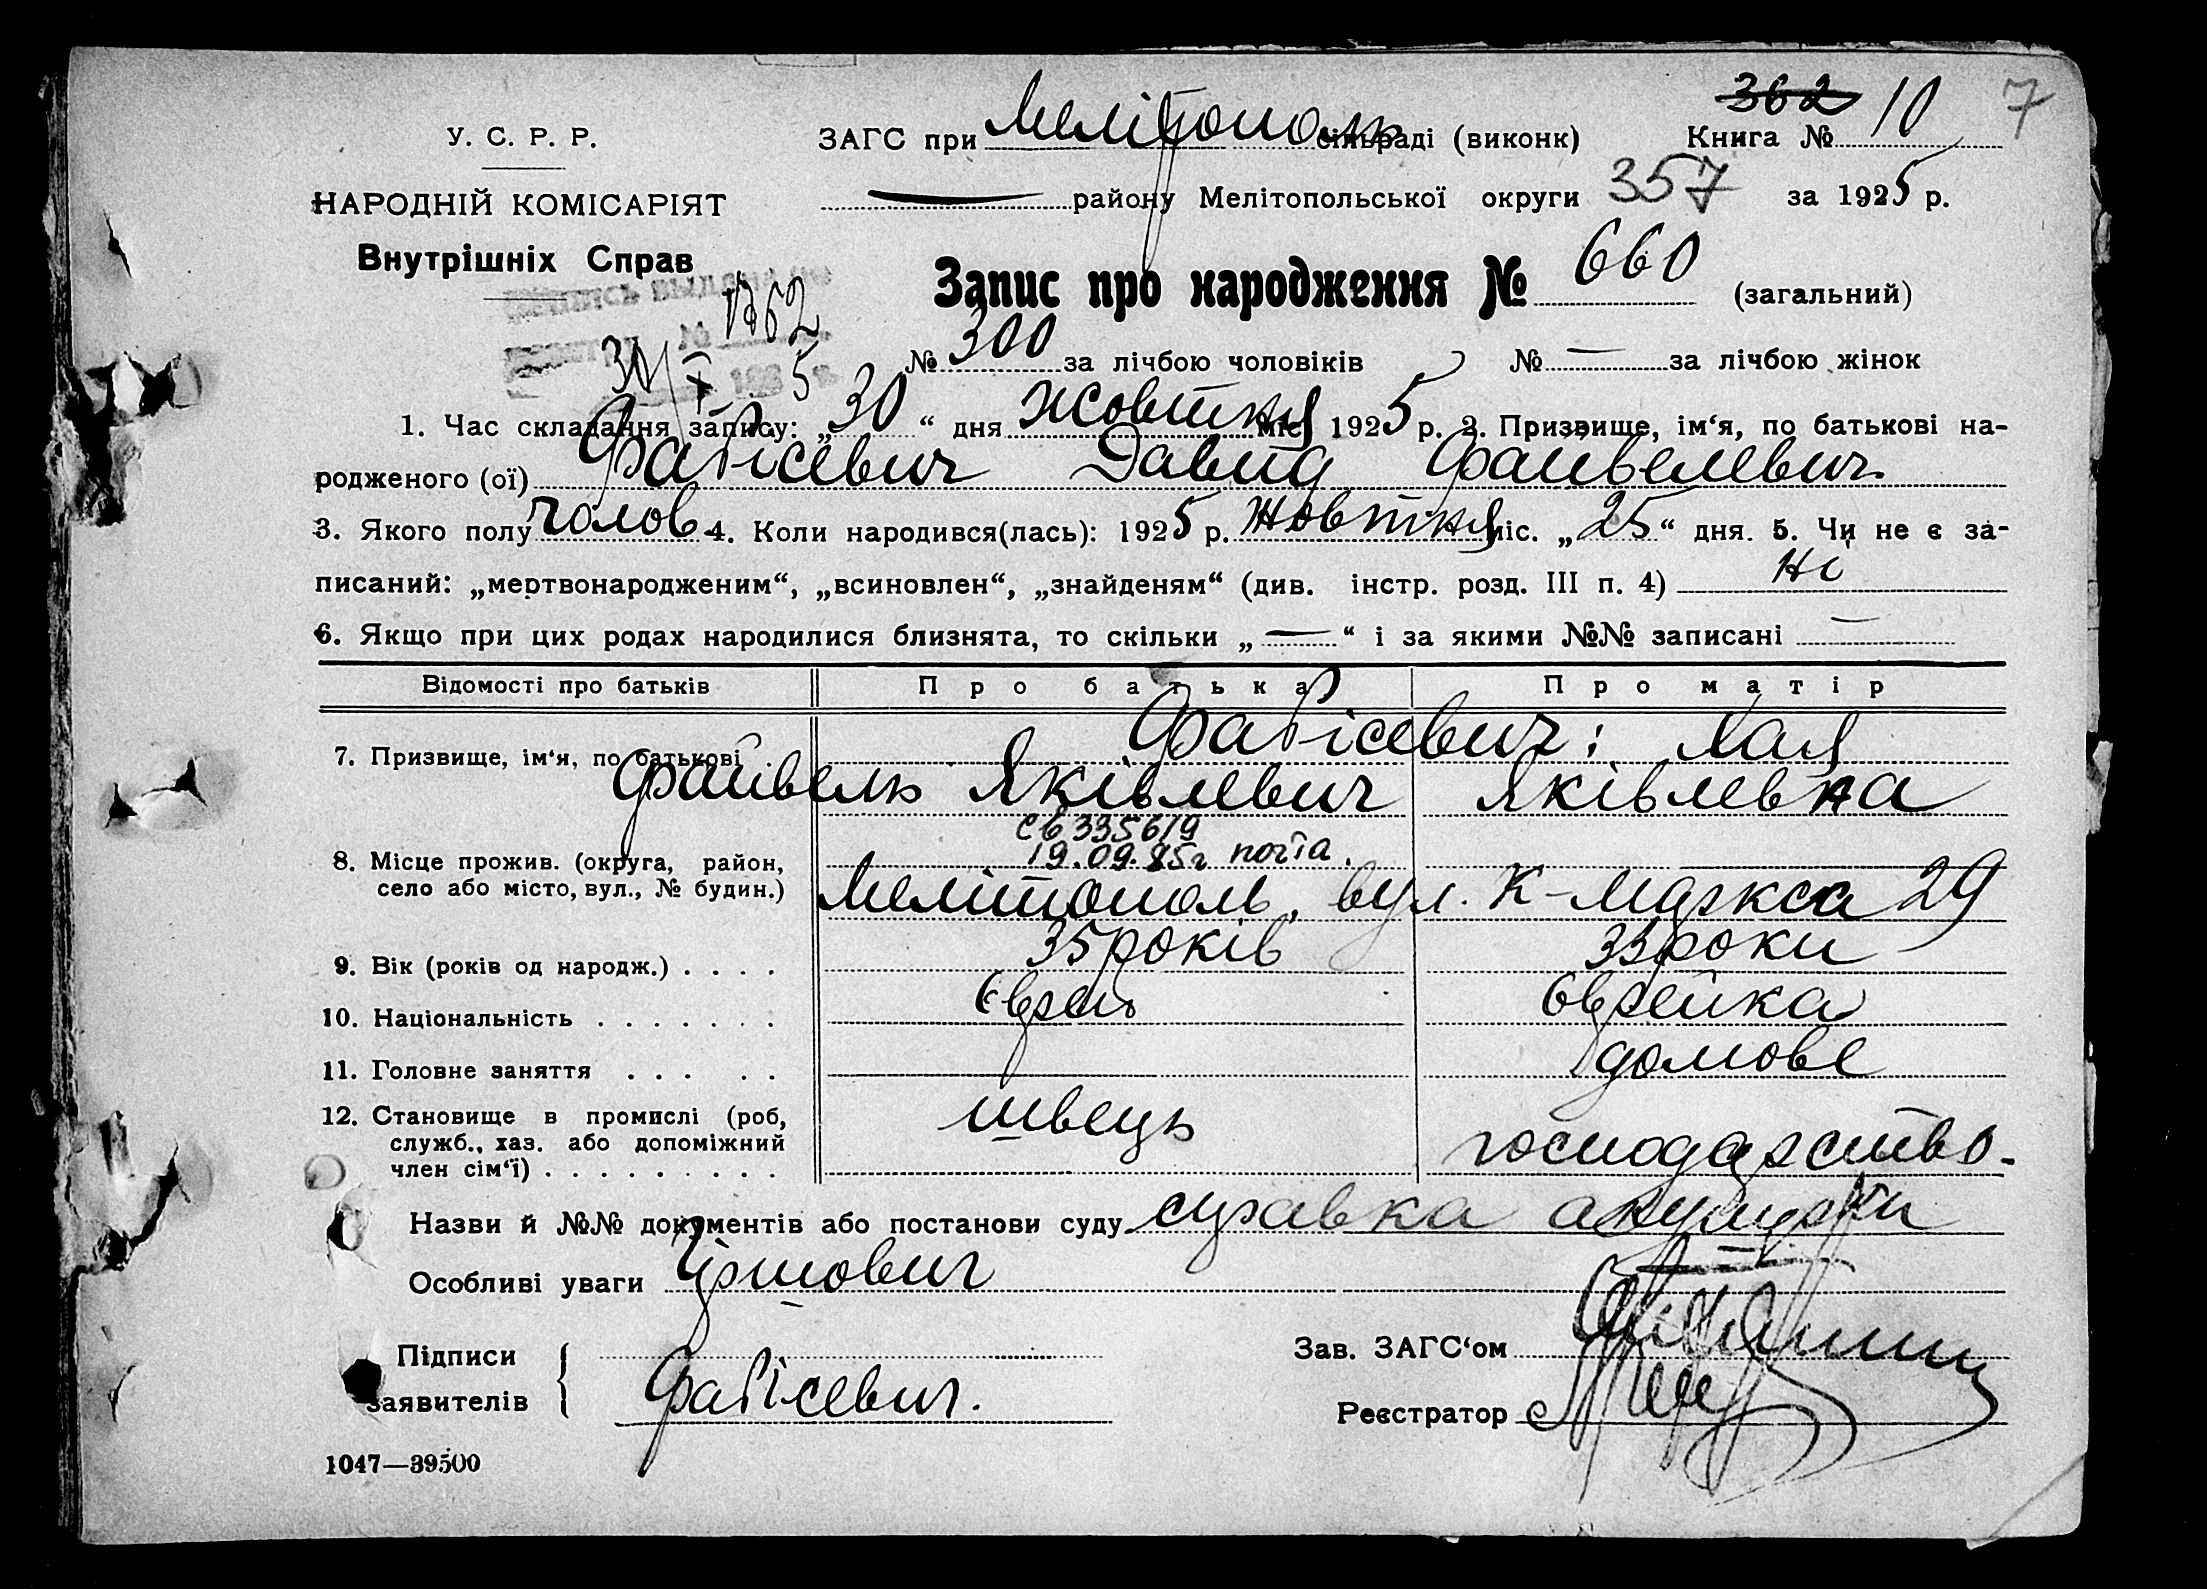 362 10 7
У. С. Р. Р. ЗАГС при Мелітополь сільраді (виконк) Книга №
НАРОДНІЙ КОМІСАРІЯТ — району Мелітопольської округи 357 за 1925 р.
Внутрішніх Справ
Запис про народження № 660 (загальний)
1362
№ 300 за лічбою чоловіків № — за лічбою жінок
30/X 5
1. Час складання запису: „30“ дня жовтня міс. 1925 р. 2. Призвище, ім‘я, по батькові на-
родженого (ої) Фабісевич Давид Файвелевич
3. Якого полу чолов 4. Коли народився(лась): 1925 р. жовтня міс. „25“ дня. 5. Чи не є за-
писаний: „мертвонародженим“, „всиновлен“, „знайденям“ (див. інстр. розд. III п. 4) ні
6. Якщо при цих родах народилися близнята, то скільки „—“ і за якими №№ записані —
Відомості про батьків Про батька Про матір
7. Призвище, ім‘я, по батькові Фабісевич: Хая
Файвель Яківлевич Яківлевна
св 335619
19.09.85г
8. Місце прожив. (округа, район,
село або місто, вул., № будин.) Мелітополь, вул. К-Маркса 29
9. Вік (років од народж.) . . . . 35 років 33 роки
10. Національність . . . . . . . Єврей Єврейка
11. Головне заняття . . . . . домове
12. Становище в промислі (роб,
служб., хаз. або допоміжний
член сім‘ї) . . . . . . . . . швець господарство.
Назви й №№ документів або постанови суду справка акушерки
Особливі уваги
Зав. ЗАГС‘ом
Підписи
заявителів Фабісевич.
Реєстратор
1047—39500